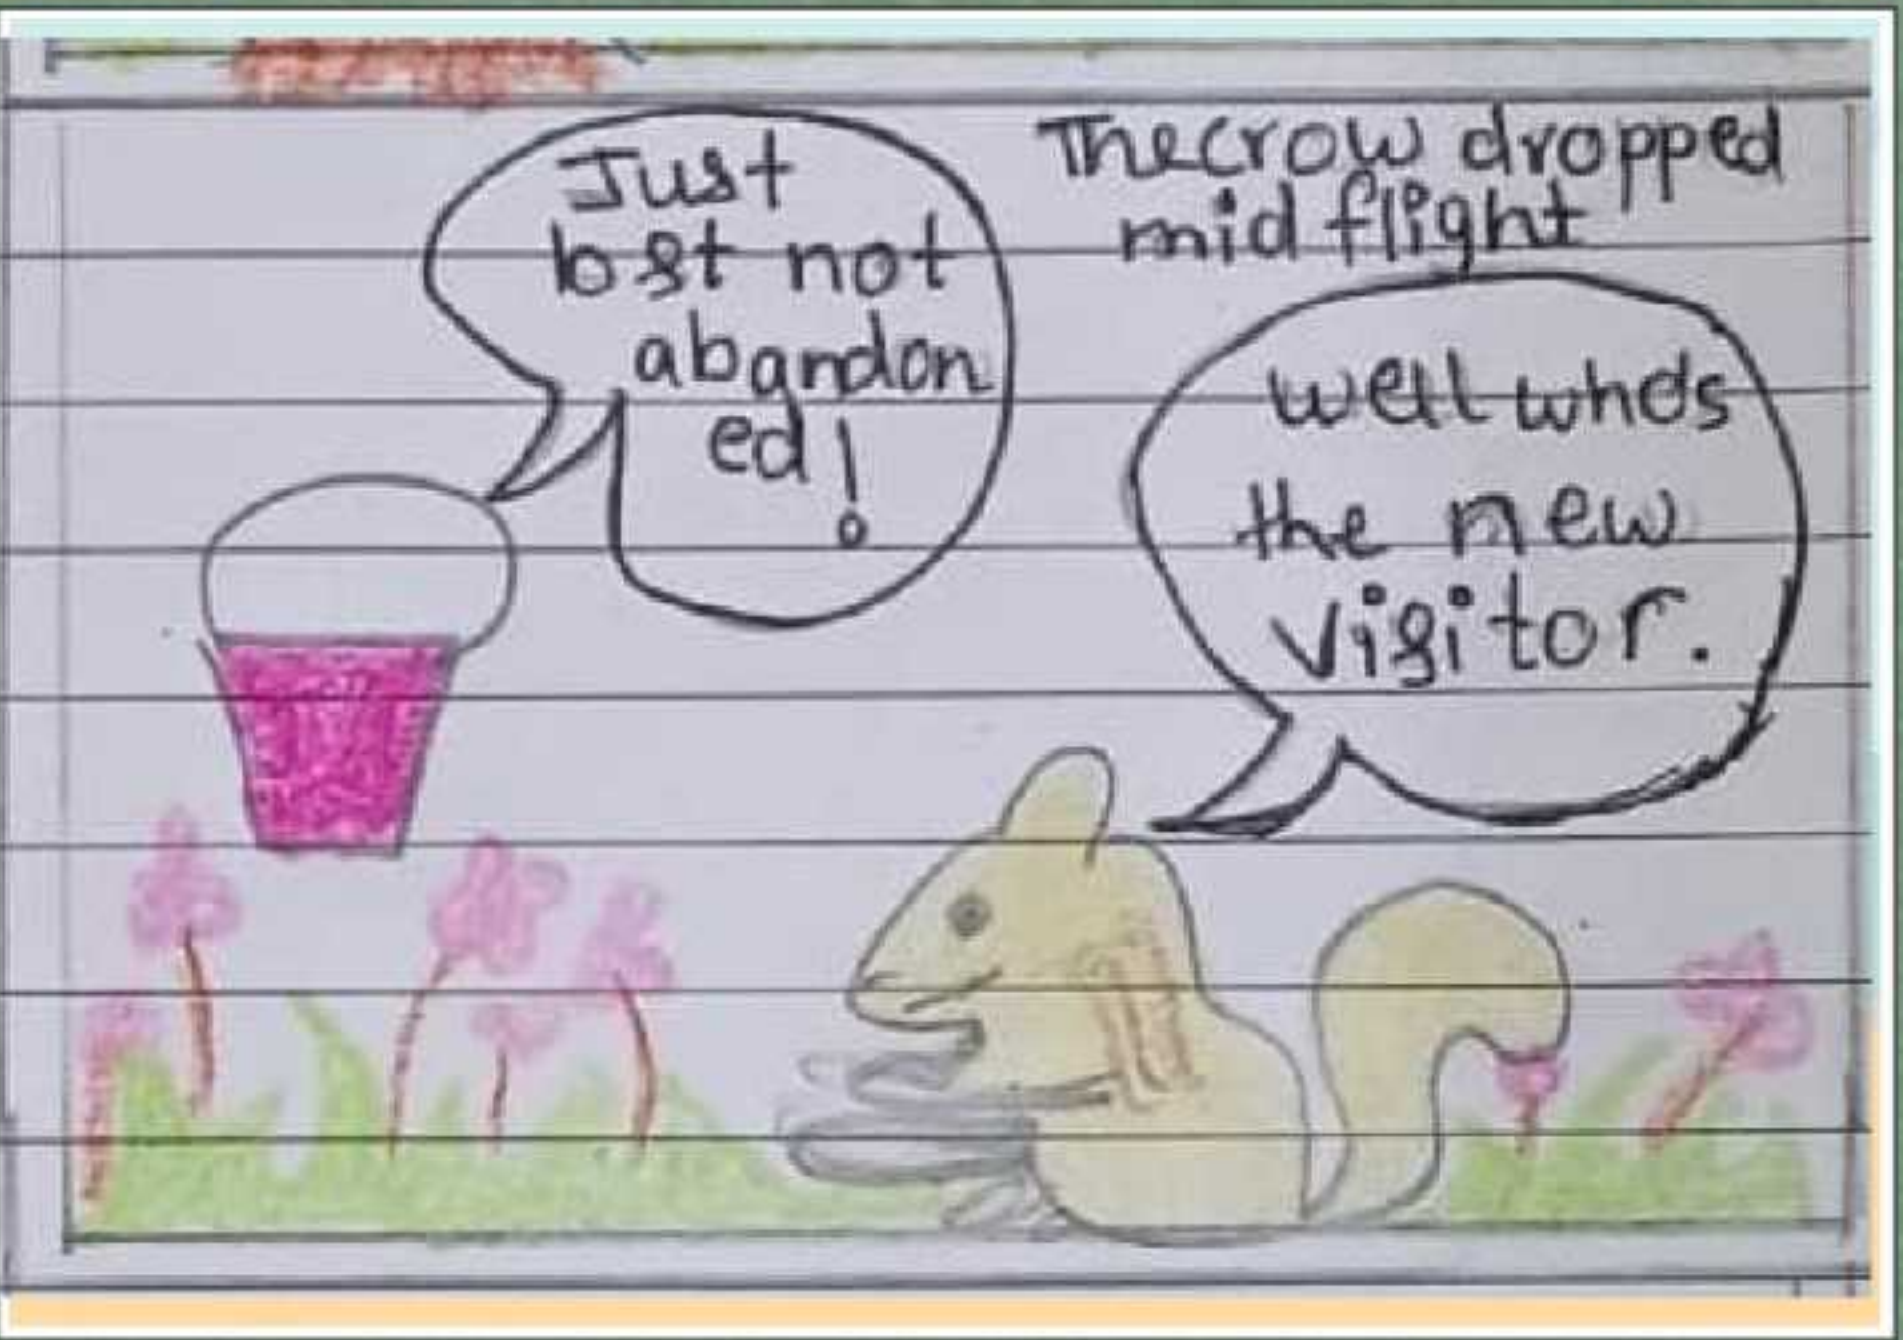 Just
lost not
abandon
ed!
The crow dropped
mid flight
well who's
the new
visitor.